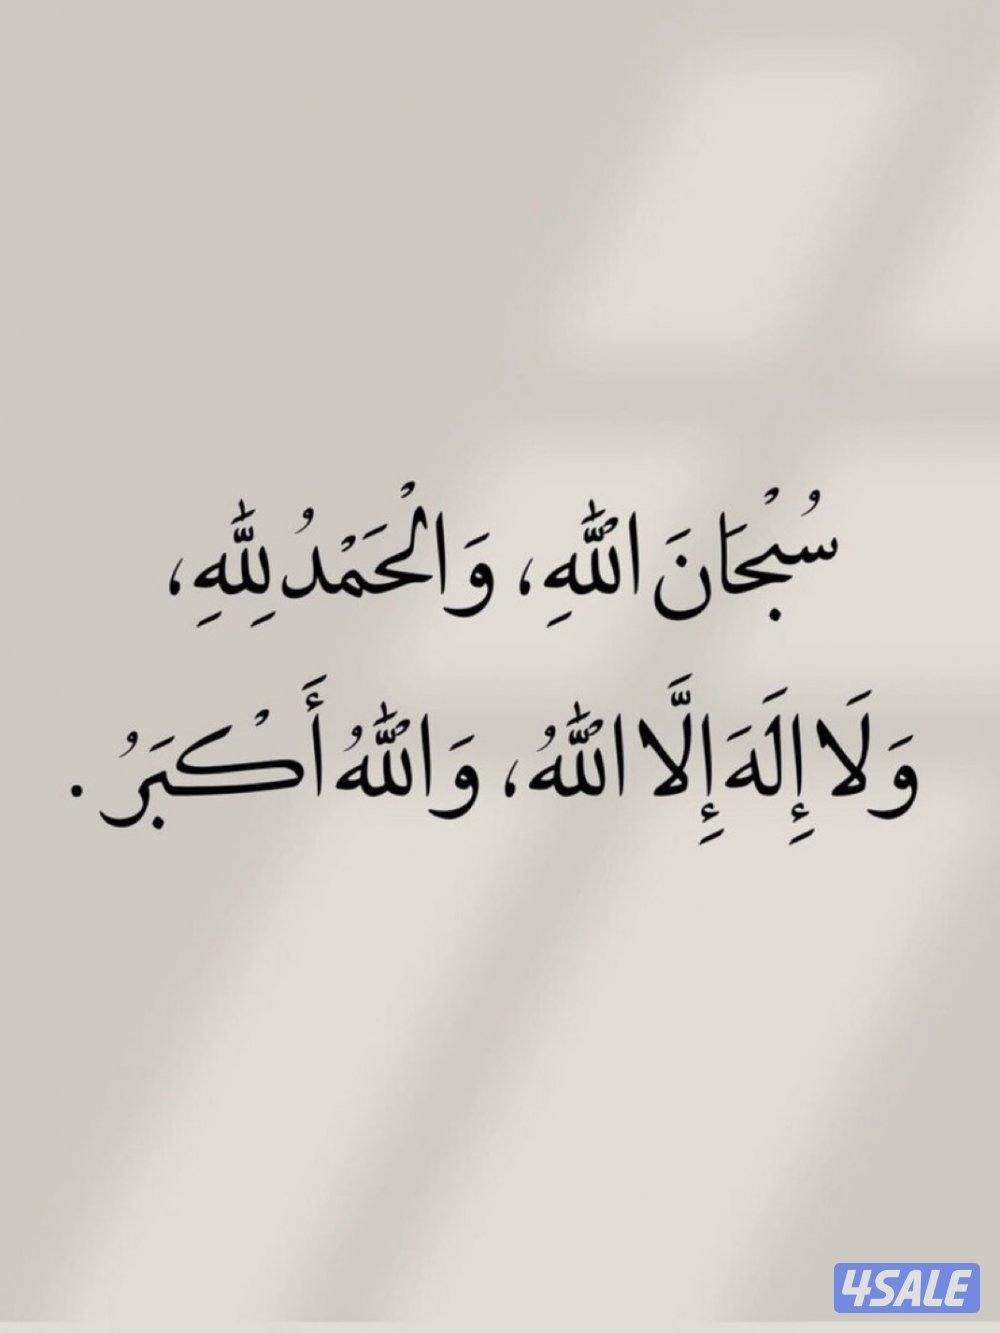 سُبْحَانَ اللّٰهِ، وَالْحَمْدُ لِلّٰهِ،
وَلَا إِلَهَ إِلَّا اللّٰهُ، وَاللّٰهُ أَكْبَرُ .
4SALE